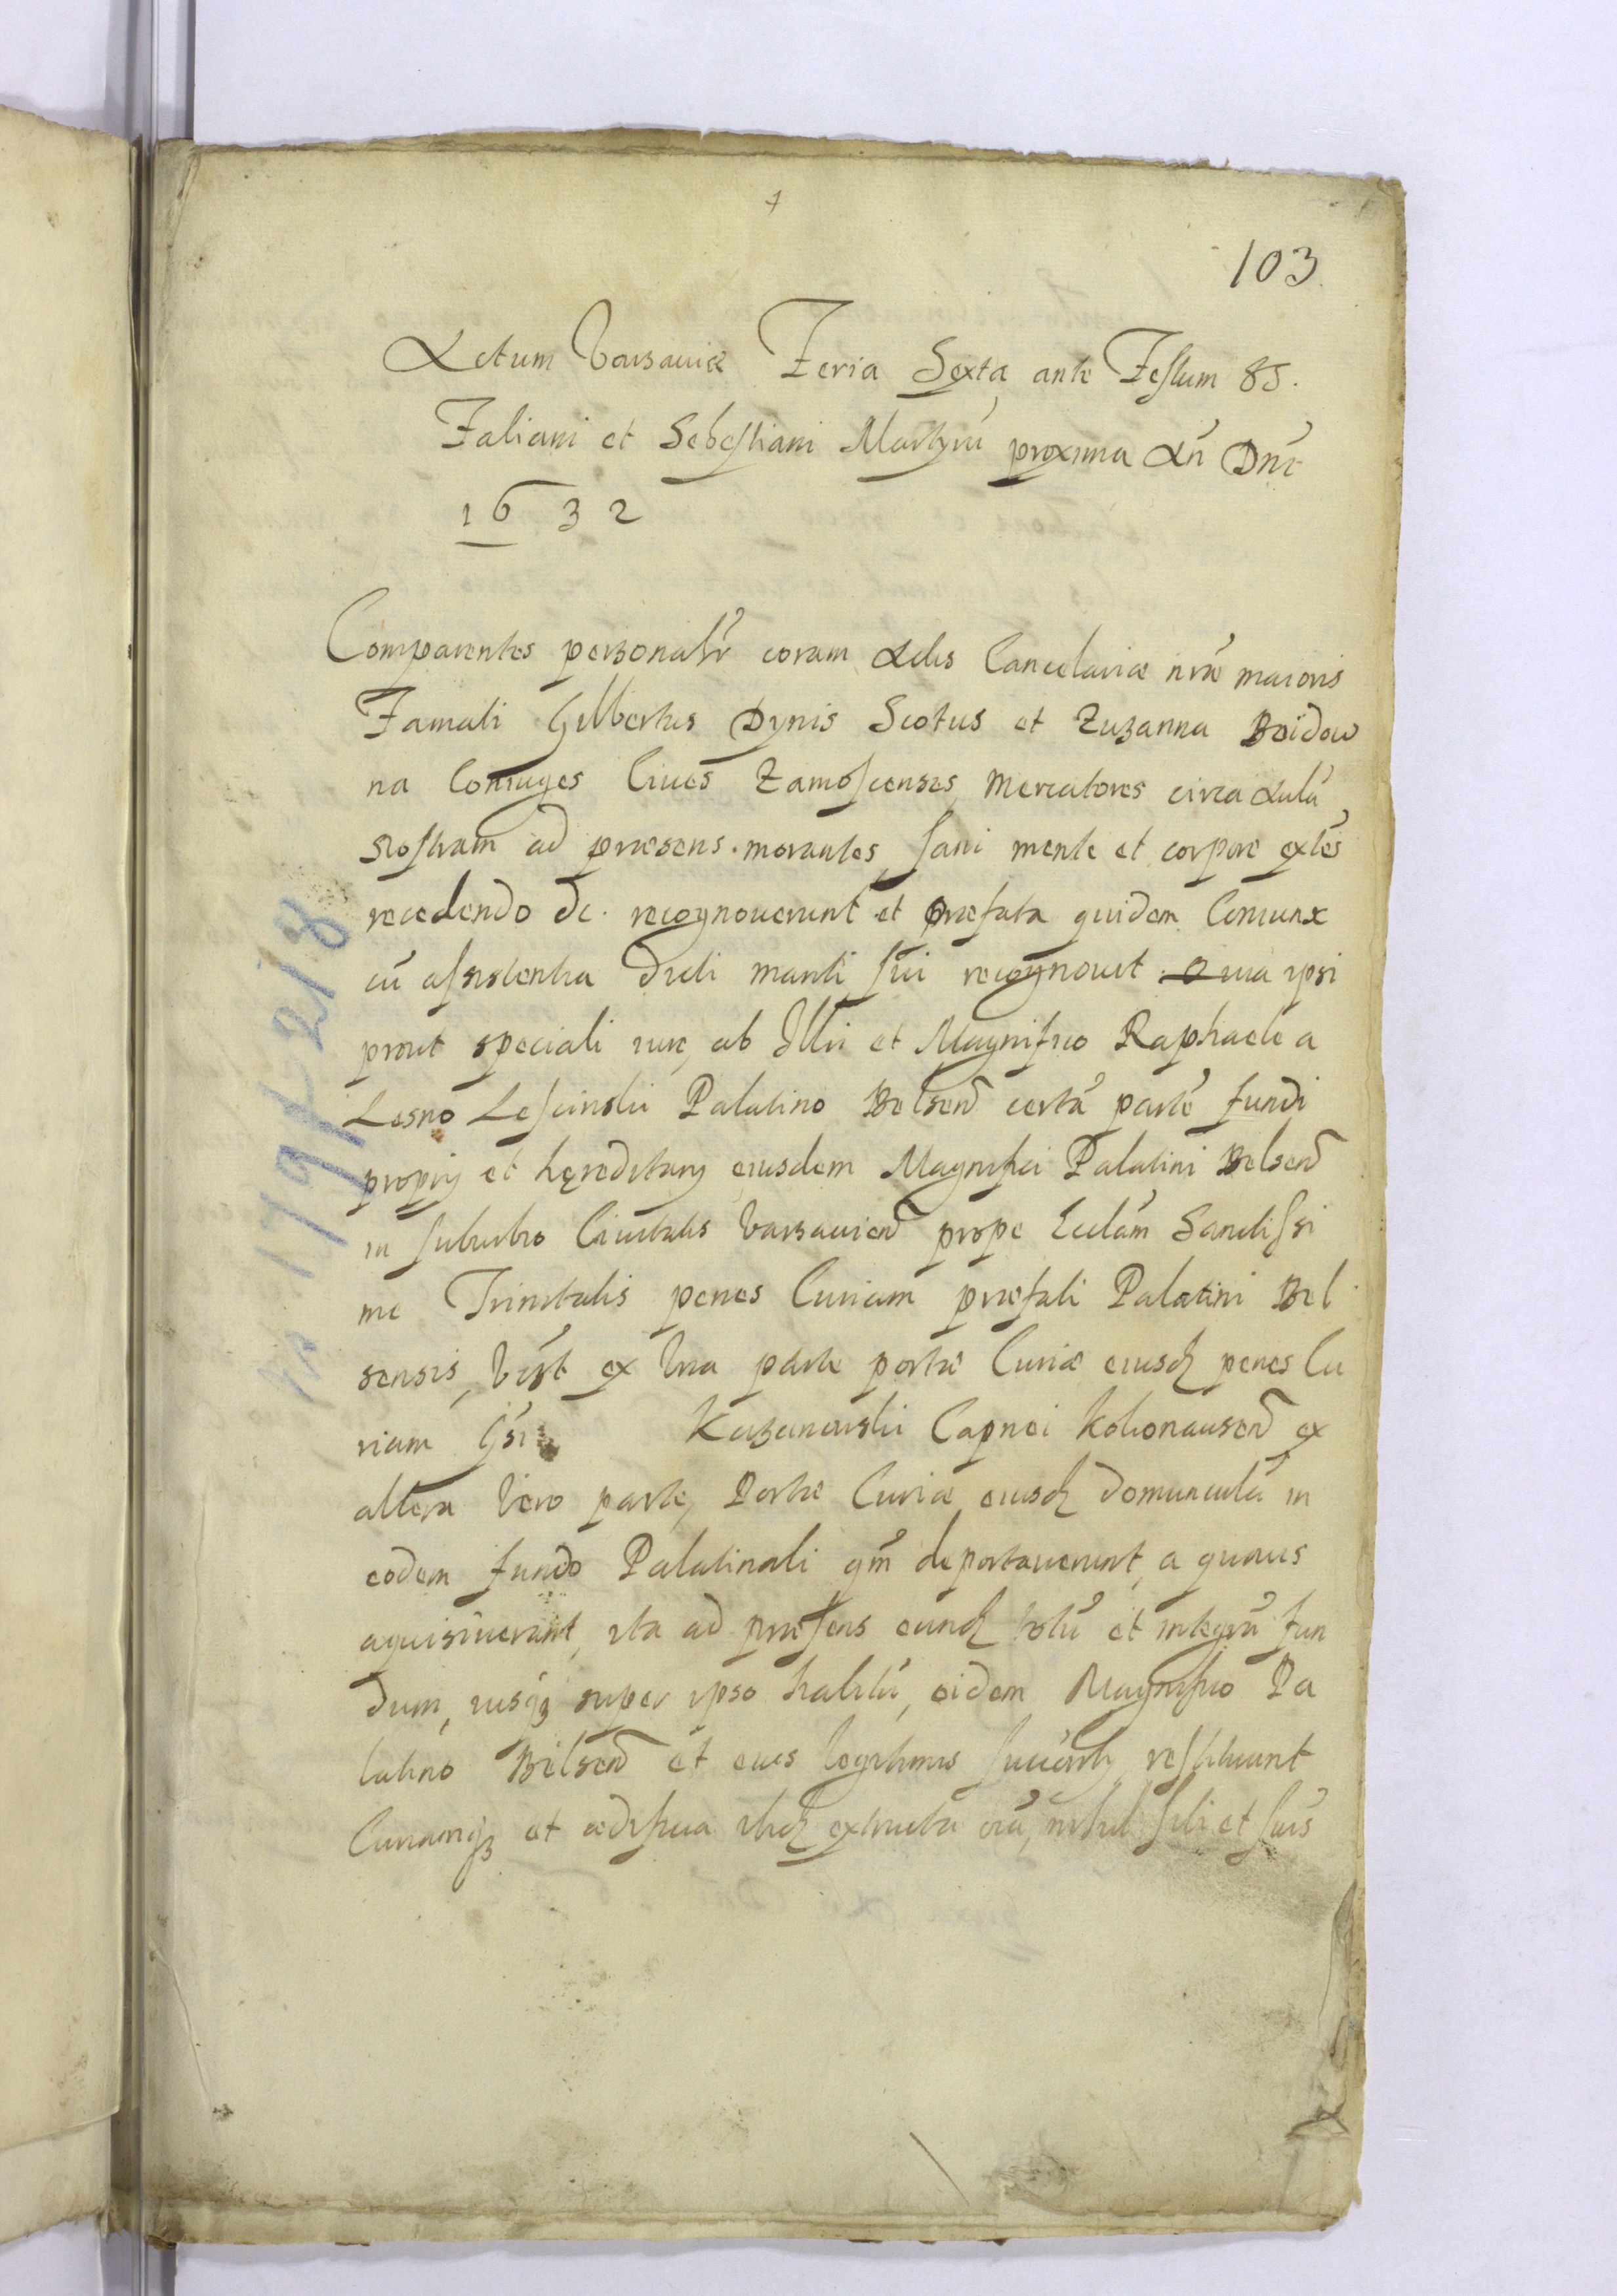 103.
Actum Varsauiæ Feria Sexta ante Festum SS.
Fabiani et Sebestiani Martyrũ proxima Añ Dni
1632
Comparentes personalr coram Actis Cancelariæ nræ maioris
Famati Gilbertus Dynis Scotus et Zuzanna Boidow
na Coniuges Ciues Zamoscenses, Mercatores circa Aulã
nostram ad præsens morantes, sani mente et corpore extes
recedendo &c. recognouerunt et præfata quidem Coniunx
cũ assistentia dicti mariti sui recognouit. Quia ipsi
prout speciali iure, ab Illri et Magnifico Raphaele a
Lesno Lescinski Palatino Belsen certã parte fundi
proprij et hęreditarij eiusdem Magnifici Palatini Belsen
in suburbio Ciuitatis Varsauien prope Eccłam Sanctissi
me Trinitatis penes Curiam præfati Palatini Bel
sensis, vist ex Vna parte portæ Curiæ eiusd penes Cu
riam Gsi Kazanowski Capnei Kokonausen ex
altera Vero parte, Portæ Curiæ eiusd domunculã in
eodem fundo Palatinali qm deportauerunt, a quouis
aquisiuerant, ita ad præsens eund totũ et integrũ fun
dum, iusq super ipso habitũ, eidem Magnifico Pa
latino Belsen et eius legitimis succorib restituunt
Curiamq et ædificia ibid extructa oĩa, nihil sibi et suis
1791 218